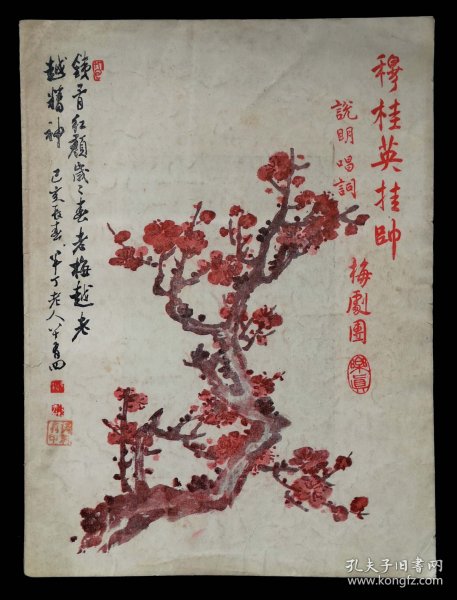 穆桂英挂帥
說明唱詞
梅劇團
鐵骨紅顏歲々春老梅越老
越精神
己亥長春 半丁老人
孔夫子旧书网
www.kongfz.com